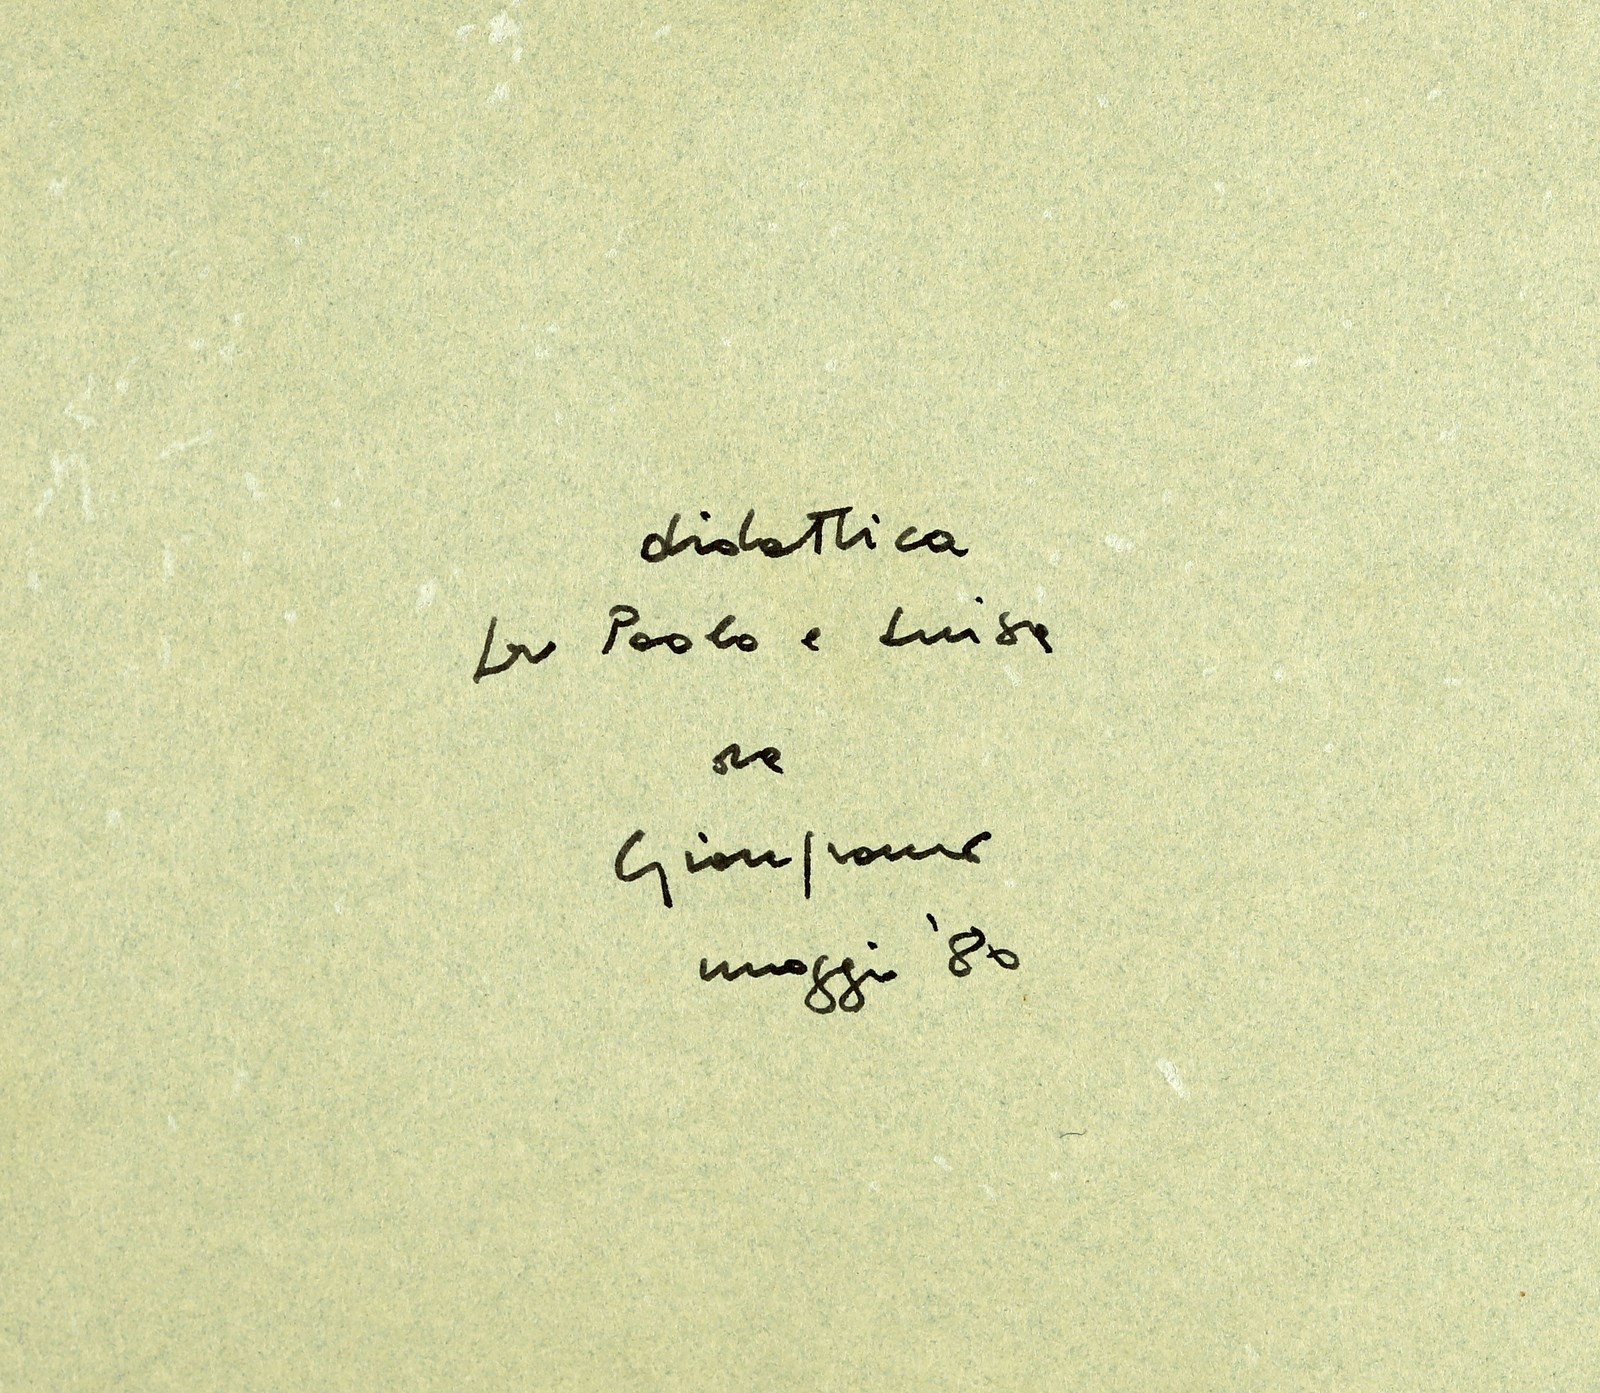 didattica
per Paolo e Luisa
da
Gianfranco
maggio '80